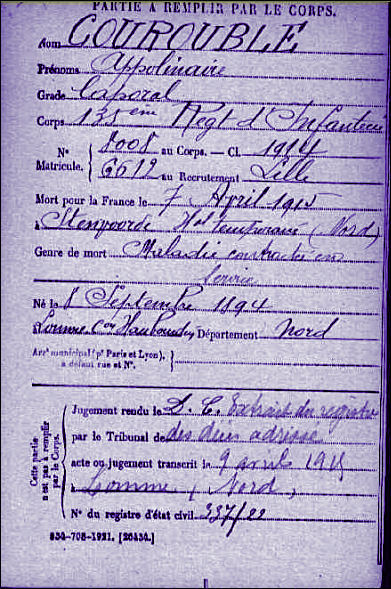 PARTIE À REMPLIR PAR LE CORPS.
Nom COUROUBLE
Prénoms Appolinaire
Grade Caporal
Corps 135 ème Regt d'Infanterie
N° 8008 au Corps. — Cl. 1914
Matricule. 6612 au Recrutement Lille
Mort pour la France le 7 Avril 1915
à Stenvoorde Hal temporaire (Nord)
Genre de mort Maladie contractée en
Service
Né le 8 Septembre 1894
à Lomme Con Haubourdin Département Nord
Arrt municipal (pr Paris et Lyon),
à défaut rue et N°.
Cette partie n'est pas à remplir par le Corps.
Jugement rendu le D. C. Extrait du registre
par le Tribunal de des décès adressé
acte ou jugement transcrit le 9 avril 1915
à Lomme (Nord)
N° du registre d'état civil 337/22
534-708-1921. [26434.]